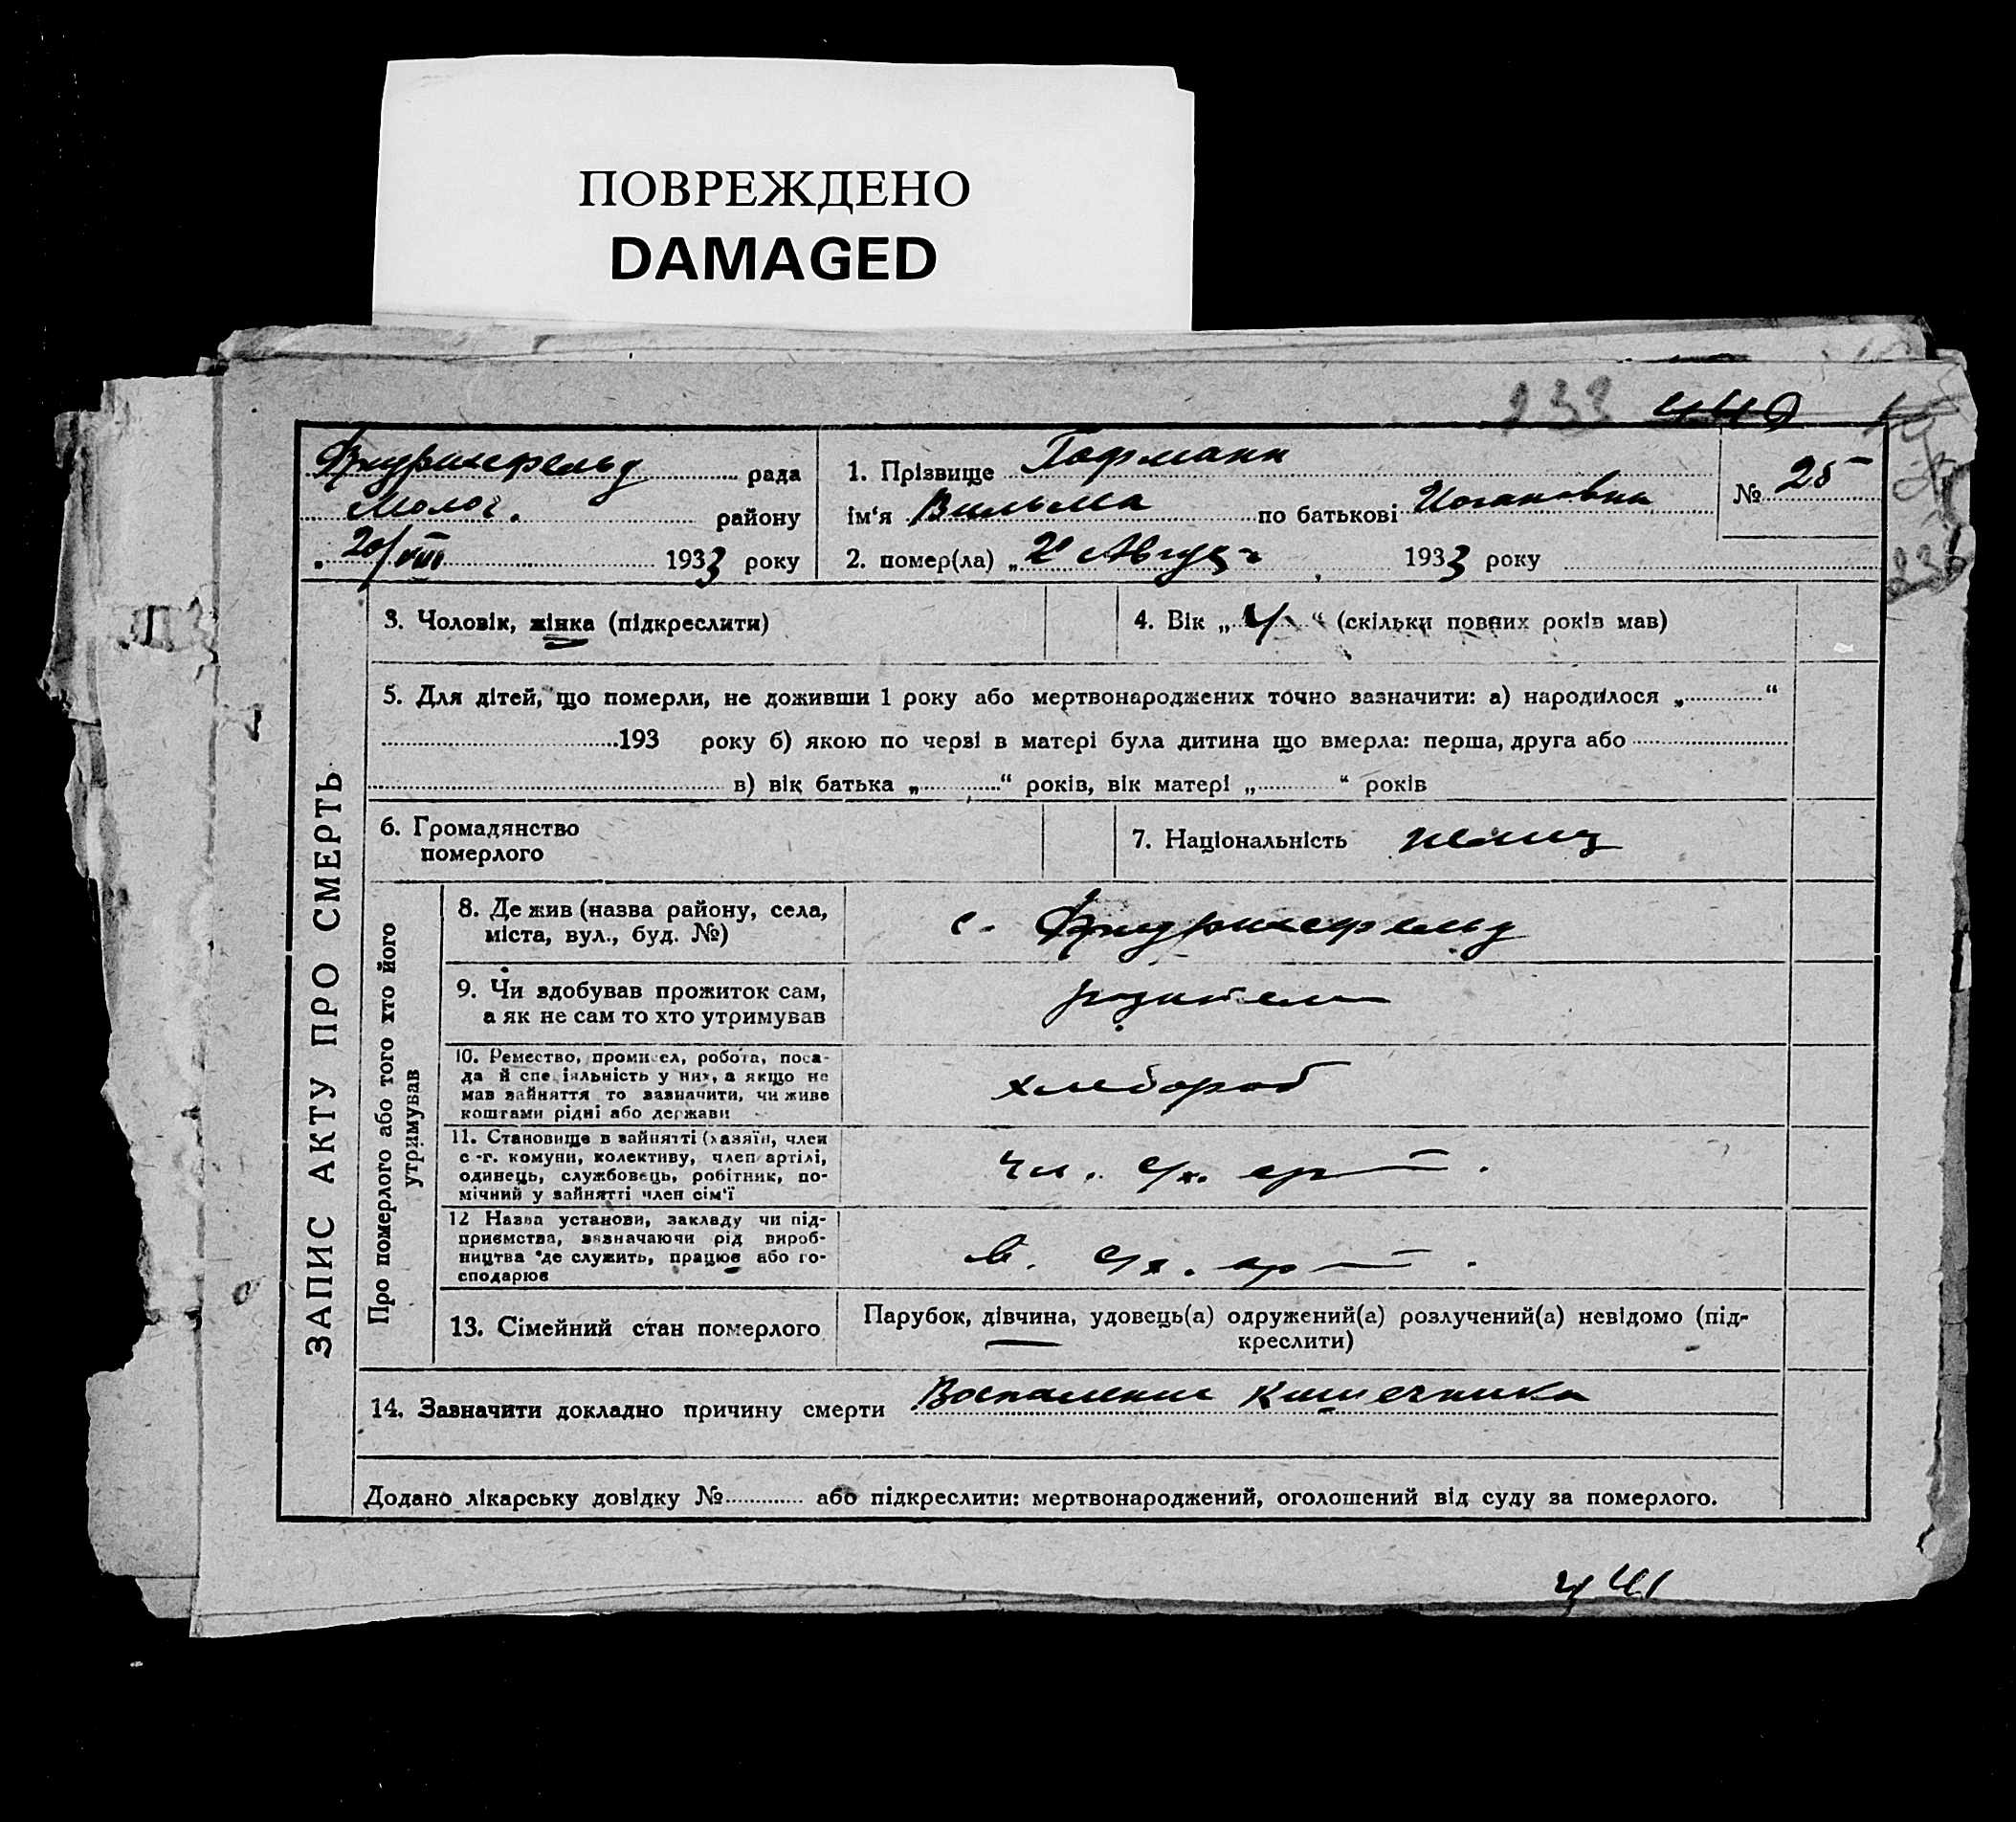 ПОВРЕЖДЕНО
DAMAGED
233 440
Фридрихсфельд рада
Молог. району
20/VIII 1933 року
1. Прізвище Гофманн
ім‘я Вильма по батькові Иогановна
№ 25
2. помер(ла) „2 Август 1933 року
236
ЗАПИС АКТУ ПРО СМЕРТЬ
3. Чоловік, жінка (підкреслити)
4. Вік „4“ (скільки повних років мав)
5. Для дітей, що померли, не доживши 1 року або мертвонароджених точно зазначити: а) народилося „ “
193 року б) якою по черві в матері була дитина що вмерла: перша, друга або
в) вік батька „ “ років, вік матері „ “ років
6. Громадянство
померлого
7. Національність немец
Про померлого або того хто його
утримував
8. Де жив (назва району, села,
міста, вул., буд. №)
с. Фридрихсфельд
9. Чи здобував прожиток сам,
а як не сам то хто утримував
родители
10. Ремество, промисел, робота, поса-
да й спеціяльність у них, а якщо не
мав зайняття то зазначити, чи живе
коштами рідні або держави
хлебороб
11. Становище в зайнятті (хазяїн, член
с.-г. комуни, колективу, член артілі,
одинець, службовець, робітник, по-
мічний у зайнятті член сім‘ї
чл. с/х. арт.
12 Назва установи, закладу чи під-
приємства, зазначаючи рід вироб-
ництва де служить, працює або го-
сподарює
в. с/х. арт.
13. Сімейний стан померлого
Парубок, дівчина, удовець(а) одружений(а) розлучений(а) невідомо (під-
креслити)
14. Зазначити докладно причину смерти Воспаление кишечника
Додано лікарську довідку № або підкреслити: мертвонароджений, оголошений від суду за померлого.
441